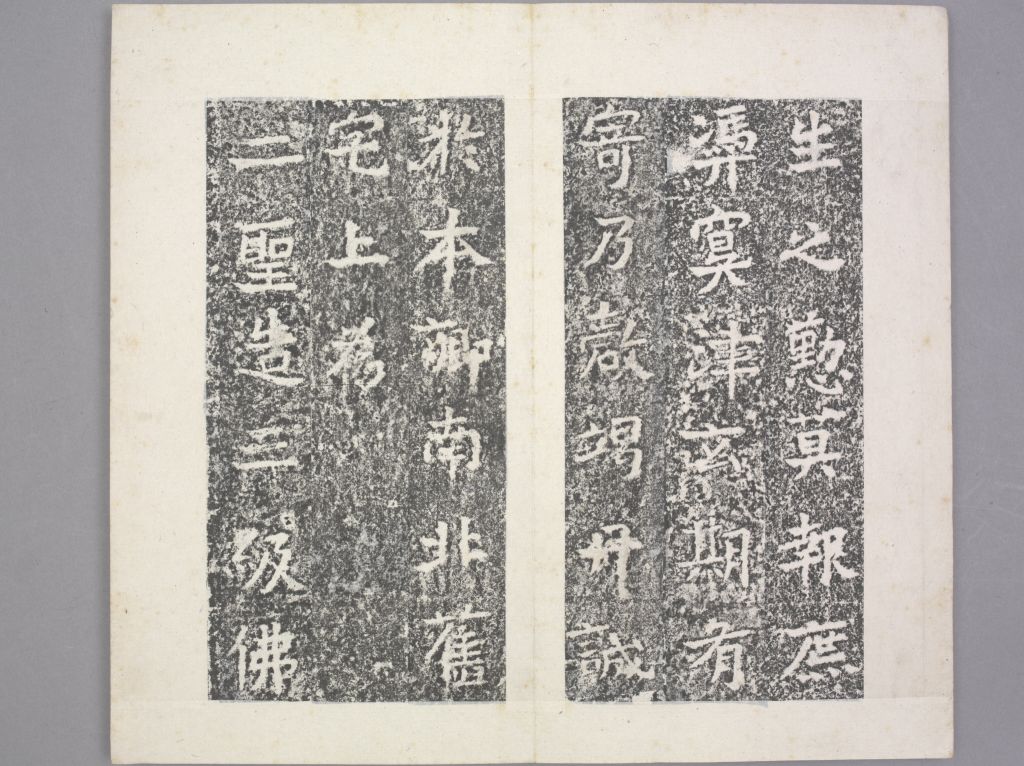 生之懃莫報庶
憑冥津玄期有
寄乃罄竭丹誠
於本鄉南北舊
宅上為
二聖造三級佛